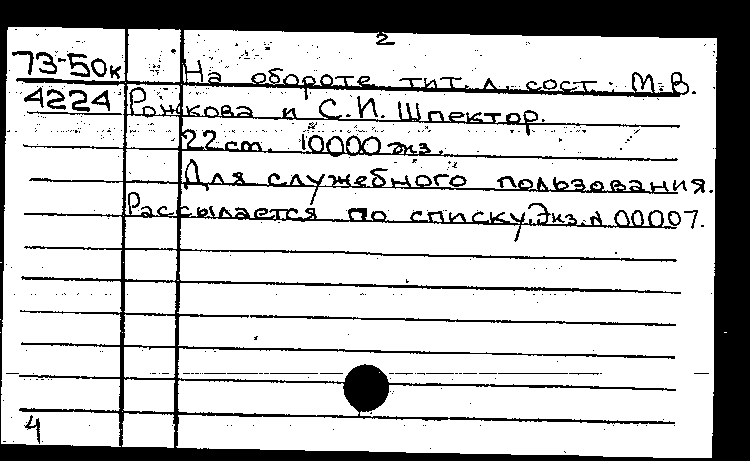 2
73-50к На обороте тит. л. сост.: М.В.
4224 Рожкова и С.И. Шпектор.
22 cm. 10000 экз.
Для служебного пользования.
Рассылается по списку. Экз. N 00007.
4